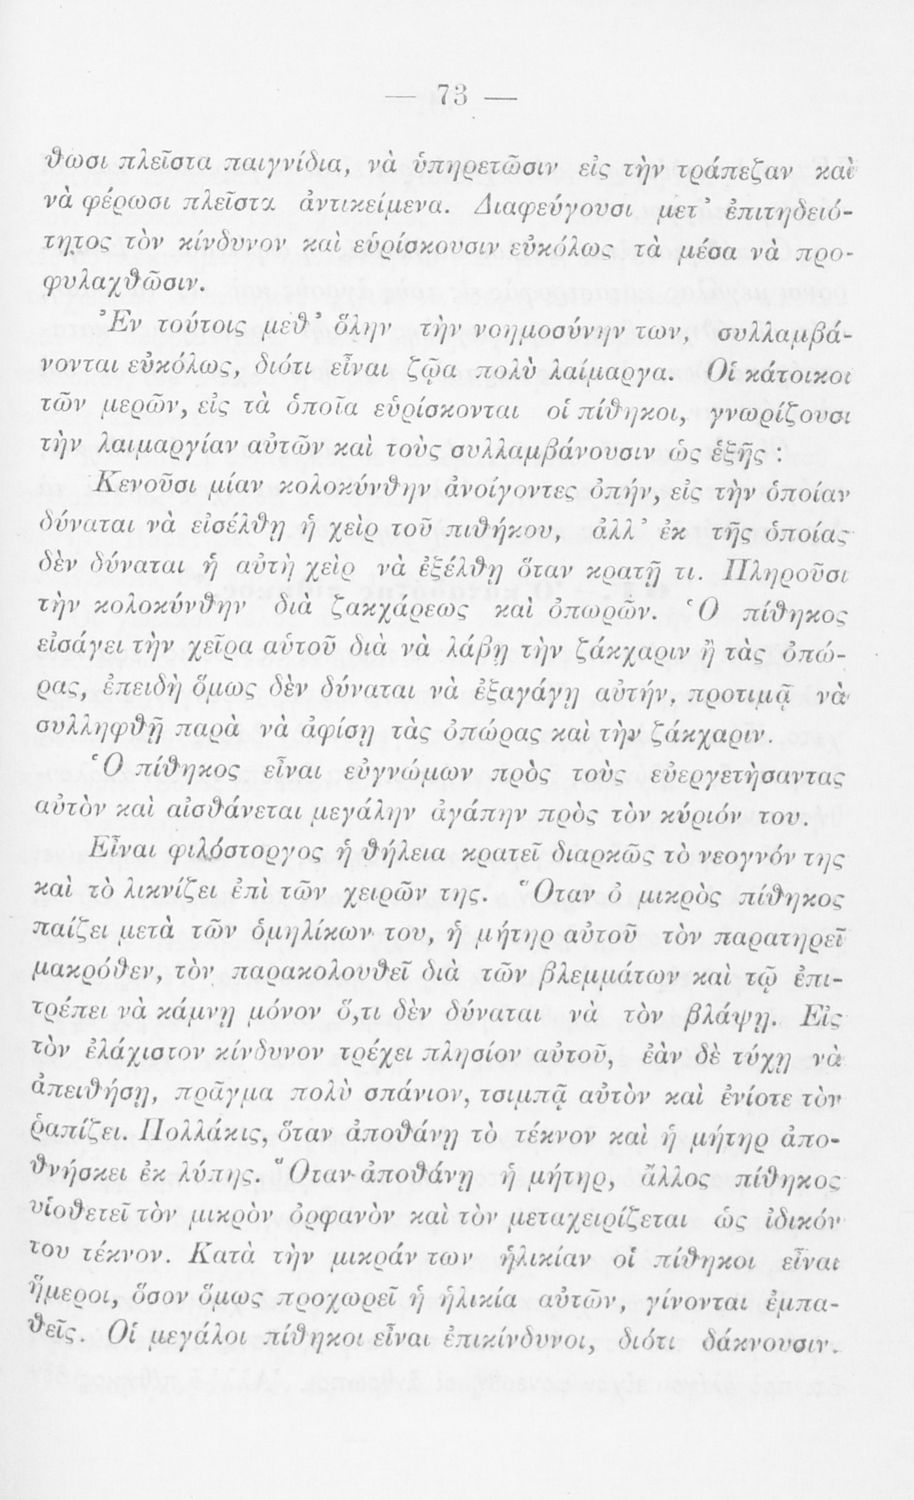 — 73 —
θωσι πλεῖστα παιγνίδια, νὰ ὑπηρετῶσιν εἰς τὴν τράπεζαν καὶ
νὰ φέρωσι πλεῖστα ἀντικείμενα. Διαφεύγουσι μετ᾿ ἐπιτηδειό-
τητος τὸν κίνδυνον καὶ εὑρίσκουσιν εὐκόλως τὰ μέσα νὰ προ-
φυλαχθῶσιν.
Ἐν τούτοις μεθ᾿ ὅλην τὴν νοημοσύνην των, συλλαμβά-
νονται εὐκόλως, διότι εἶναι ζῷα πολὺ λαίμαργα. Οἱ κάτοικοι
τῶν μερῶν, εἰς τὰ ὁποῖα εὑρίσκονται οἱ πίθηκοι, γνωρίζουσι
τὴν λαιμαργίαν αὐτῶν καὶ τοὺς συλλαμβάνουσιν ὡς ἑξῆς :
Κενοῦσι μίαν κολοκύνθην ἀνοίγοντες ὀπήν, εἰς τὴν ὁποίαν
δύναται νὰ εἰσέλθῃ ἡ χεὶρ τοῦ πιθήκου, ἀλλ᾿ ἐκ τῆς ὁποίας
δὲν δύναται ἡ αὐτὴ χεὶρ νὰ ἐξέλθῃ ὅταν κρατῇ τι. Πληροῦσι
τὴν κολοκύνθην διὰ ζακχάρεως καὶ ὀπωρῶν. Ὁ πίθηκος
εἰσάγει τὴν χεῖρα αὑτοῦ διὰ νὰ λάβῃ τὴν ζάκχαριν ἢ τὰς ὀπώ-
ρας, ἐπειδὴ ὅμως δὲν δύναται νὰ ἐξαγάγῃ αὐτήν, προτιμᾷ νὰ
συλληφθῇ παρὰ νὰ ἀφίσῃ τὰς ὀπώρας καὶ τὴν ζάκχαριν.
Ὁ πίθηκος εἶναι εὐγνώμων πρὸς τοὺς εὐεργετήσαντας
αὐτὸν καὶ αἰσθάνεται μεγάλην ἀγάπην πρὸς τὸν κύριόν του.
Εἶναι φιλόστοργος ἡ θήλεια κρατεῖ διαρκῶς τὸ νεογνόν της
καὶ τὸ λικνίζει ἐπὶ τῶν χειρῶν της. Ὅταν ὁ μικρὸς πίθηκος
παίζει μετὰ τῶν ὁμηλίκων του, ἡ μήτηρ αὐτοῦ τὸν παρατηρεῖ
μακρόθεν, τὸν παρακολουθεῖ διὰ τῶν βλεμμάτων καὶ τῷ ἐπι-
τρέπει νὰ κάμνῃ μόνον ὅ,τι δὲν δύναται νὰ τὸν βλάψῃ. Εἰς
τὸν ἐλάχιστον κίνδυνον τρέχει πλησίον αὐτοῦ, ἐὰν δὲ τύχῃ νὰ
ἀπειθήσῃ, πρᾶγμα πολὺ σπάνιον, τσιμπᾷ αὐτὸν καὶ ἐνίοτε τὸν
ῥαπίζει. Πολλάκις, ὅταν ἀποθάνῃ τὸ τέκνον καὶ ἡ μήτηρ ἀπο-
θνήσκει ἐκ λύπης. Ὅταν ἀποθάνῃ ἡ μήτηρ, ἄλλος πίθηκος
υἱοθετεῖ τὸν μικρὸν ὀρφανὸν καὶ τὸν μεταχειρίζεται ὡς ἰδικόν
του τέκνον. Κατὰ τὴν μικράν των ἡλικίαν οἱ πίθηκοι εἶναι
ἥμεροι, ὅσον ὅμως προχωρεῖ ἡ ἡλικία αὐτῶν, γίνονται ἐμπα-
θεῖς. Οἱ μεγάλοι πίθηκοι εἶναι ἐπικίνδυνοι, διότι δάκνουσιν.